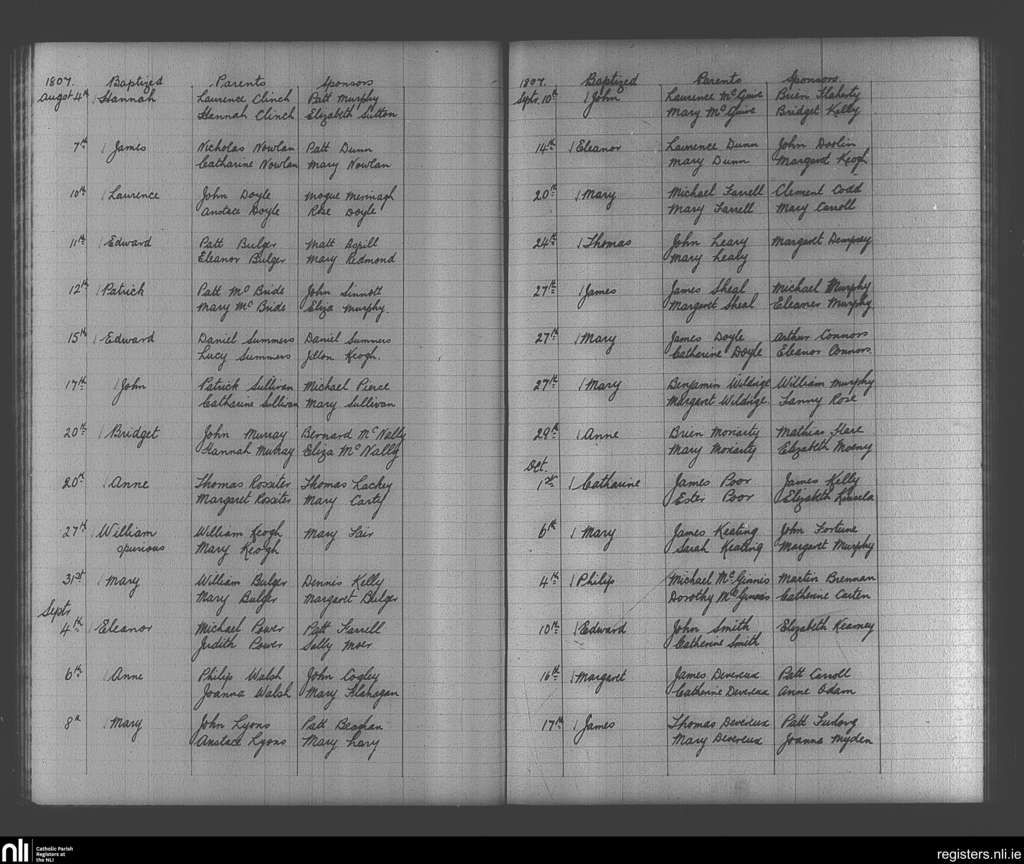 1807. Baptized Parents Sponsors
Augst 4th Hannah Laurence Clinch Patt Murphy
Hannah Clinch Elizabeth Sutton
7th James Nicholas Nowlan Patt Dunn
Catharine Nowlan Mary Nowlan
10th Laurence John Doyle Mogue Mernagh
Anstace Doyle Rose Doyle
11th Edward Patt Bulger Matt
Eleanor Bulger Mary Redmond
12th Patrick Patt McBride John Sinnott
Mary McBride Eliza Murphy.
15th Edward Daniel Summers Daniel Summers
Lucy Summers Keogh.
17th John Patrick Sullivan Michael Pierce
Catharine Sullivan Mary Sullivan
20th Bridget John Murray Bernard McNally
Hannah Murray Eliza McNally
20th Anne Thomas Rossiter Thomas Lackey
Margaret Rossiter Mary Carty
27th William William Keogh Mary Fair
spurious Mary Keogh
31st Mary William Bulger Dennis Kelly
Mary Bulger Margaret Bulger
Septr
4th Eleanor Michael Power Patt Farrell
Judith Power Sally Moer
6th Anne Philip Walsh John Cogley
Joanna Walsh Mary Flahagan
8th Mary John Lyons Patt Beaghan
Anstace Lyons Mary Lary
1807. Baptized Parents Sponsors.
Septr. 10th John Laurence McGuire Brien Flaherty
Mary McGuire Bridget Kelly
14th Eleanor Laurence Dunn John Doolin
Mary Dunn Margaret Keogh
20th Mary Michael Farrell Clement Codd
Mary Farrell Mary Carroll
24th Thomas John Leary Margaret Dempsey
Mary Leary
27th James James Sheal Michael Murphy
Margaret Sheal Eleanor Murphy.
27th Mary James Doyle Arthur Connors
Catharine Doyle Eleanor Connors.
27th Mary Benjamin Wildige William Murphy
Margaret Wildige Fanny Rose
29th Anne Brien Moriarty Mathias Hare
Mary Moriarty Elizabeth Moeny
Oct.
1st Catharine James Poor James Kelly
Ester Poor Elizabeth Kinsela
6th Mary James Keating John Fortune
Sarah Keating Margaret Murphy
4th Philip Michael McGinnes Martin Brennan
Dorothy McGinnes Catherine Carten
10th Edward John Smith Elizabeth Kearney
Catherine Smith.
16th Margaret James Devereux Patt Carroll
Catherine Devereux Anne Odam
17th James Thomas Devereux Patt Furlong
Mary Devereux Joanna Myden
nli Catholic Parish
Registers at
the NLI
registers.nli.ie